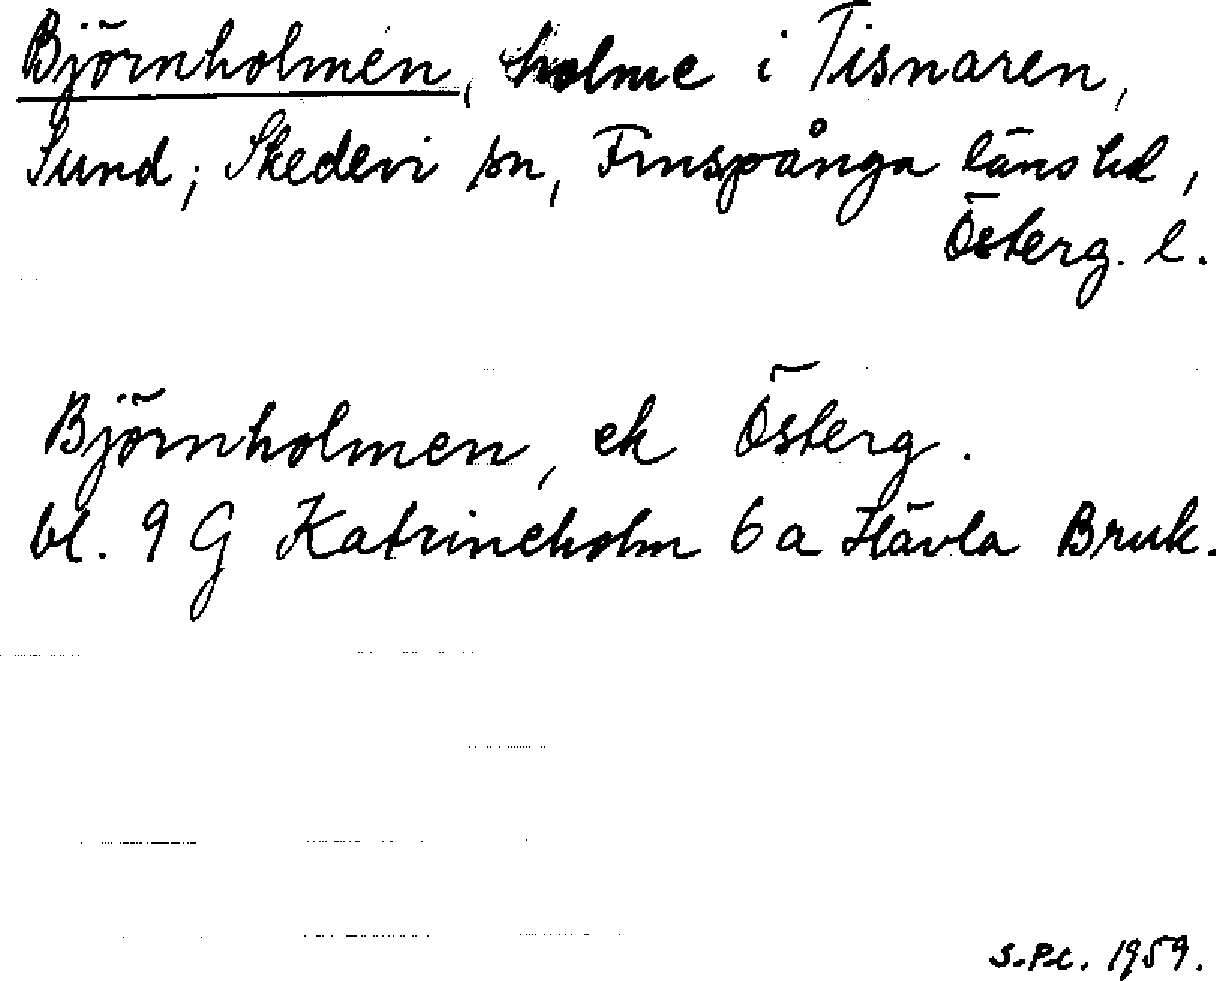 Björnholmen, holme i Tisnaren,
Sund, Skedevi sn, Finspånga länshd,
Österg. l.
Björnholmen, ek Österg.
bl. 9 G Katrineholm 6 a Hävla Bruk.
S.P.C. 1959.